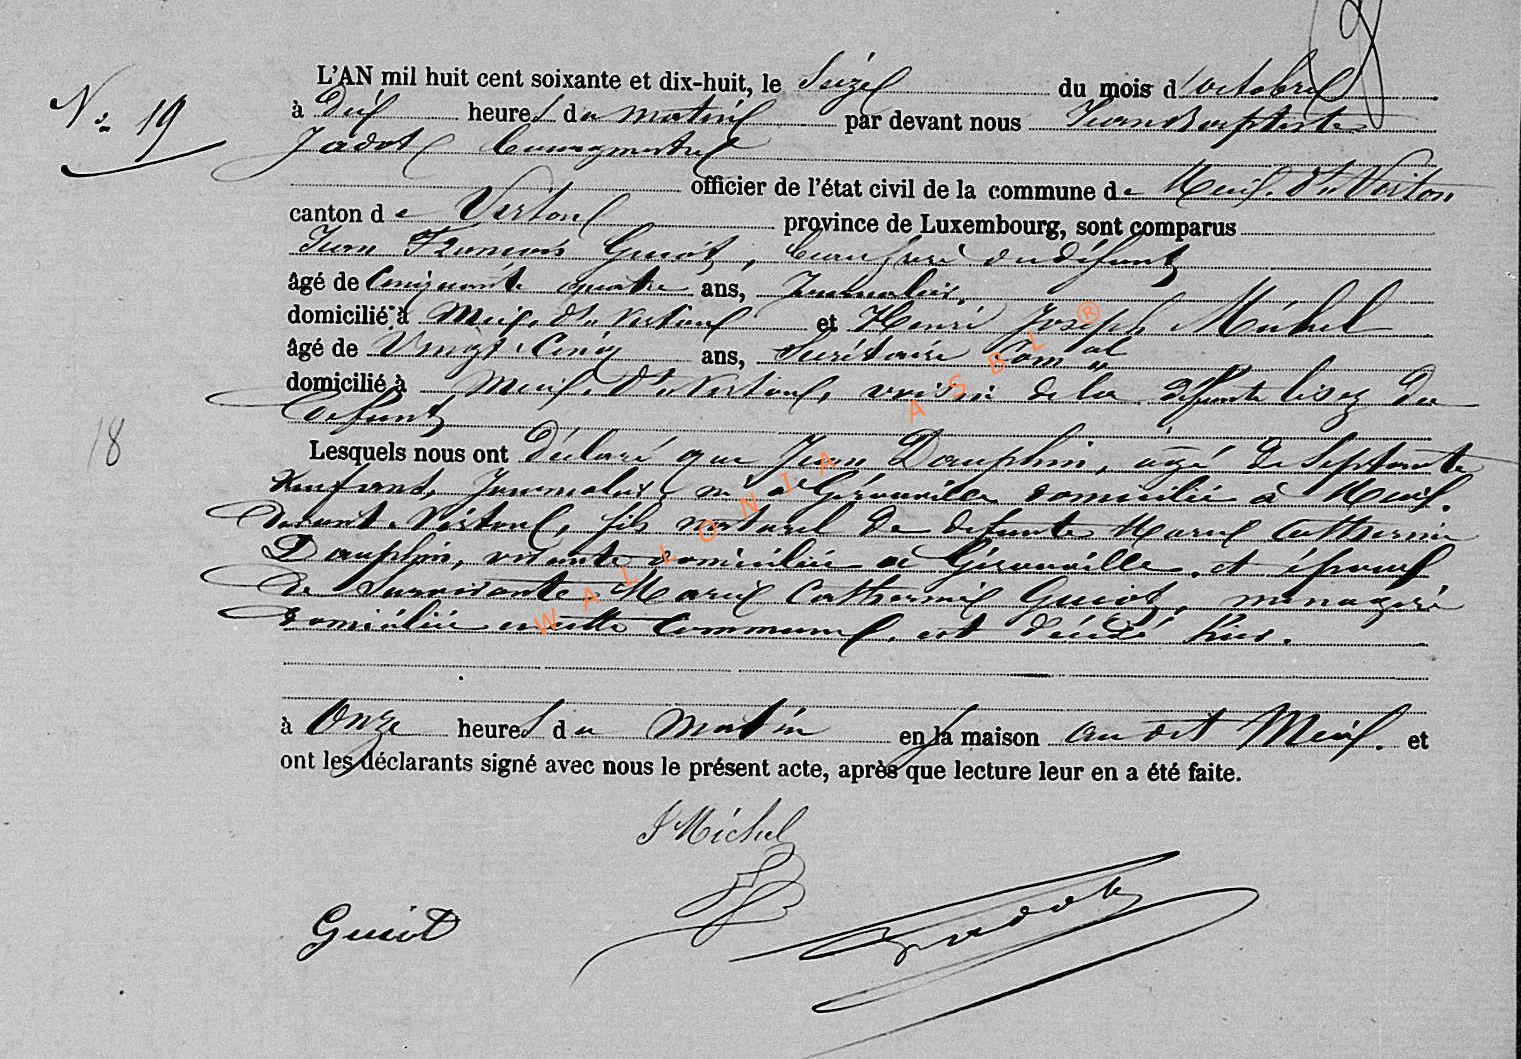 N° 19
L'AN mil huit cent soixante et dix-huit, le Seize du mois d'octobre
à dix heures du matin par devant nous Jean Baptiste
Jadot bourgmestre
officier de l'état civil de la commune de Meix-dt-Virton
canton de Virton province de Luxembourg, sont comparus
Jean François Guiot, beau frère du défunt
âgé de Cinquante quatre ans, Journalier,
domicilié à Meix-dt-Virton et Henri Joseph Michel
âgé de Vingt-Cinq ans, Secrétaire Comal
domicilié à Meix-dt-Virton, voisin de la défunte lisez du
défunt
18
Lesquels nous ont déclaré que Jean Dauphin, âgé de Septante
ans, Journalier, né à Gérouville domicilié à Meix-
devant-Virton, fils naturel de défunte Marie Catherine
Dauphin, vivante domiciliée à Gérouville, et époux
de survivante Marie Catherine Guiot, ménagère
domiciliée en cette Commune, est décédé hier.
à Onze heures du matin en la maison au dit Meix. et
ont les déclarants signé avec nous le présent acte, après que lecture leur en a été faite.
J Michel
Guiot
Jadot
WALLONIA ASBL ®